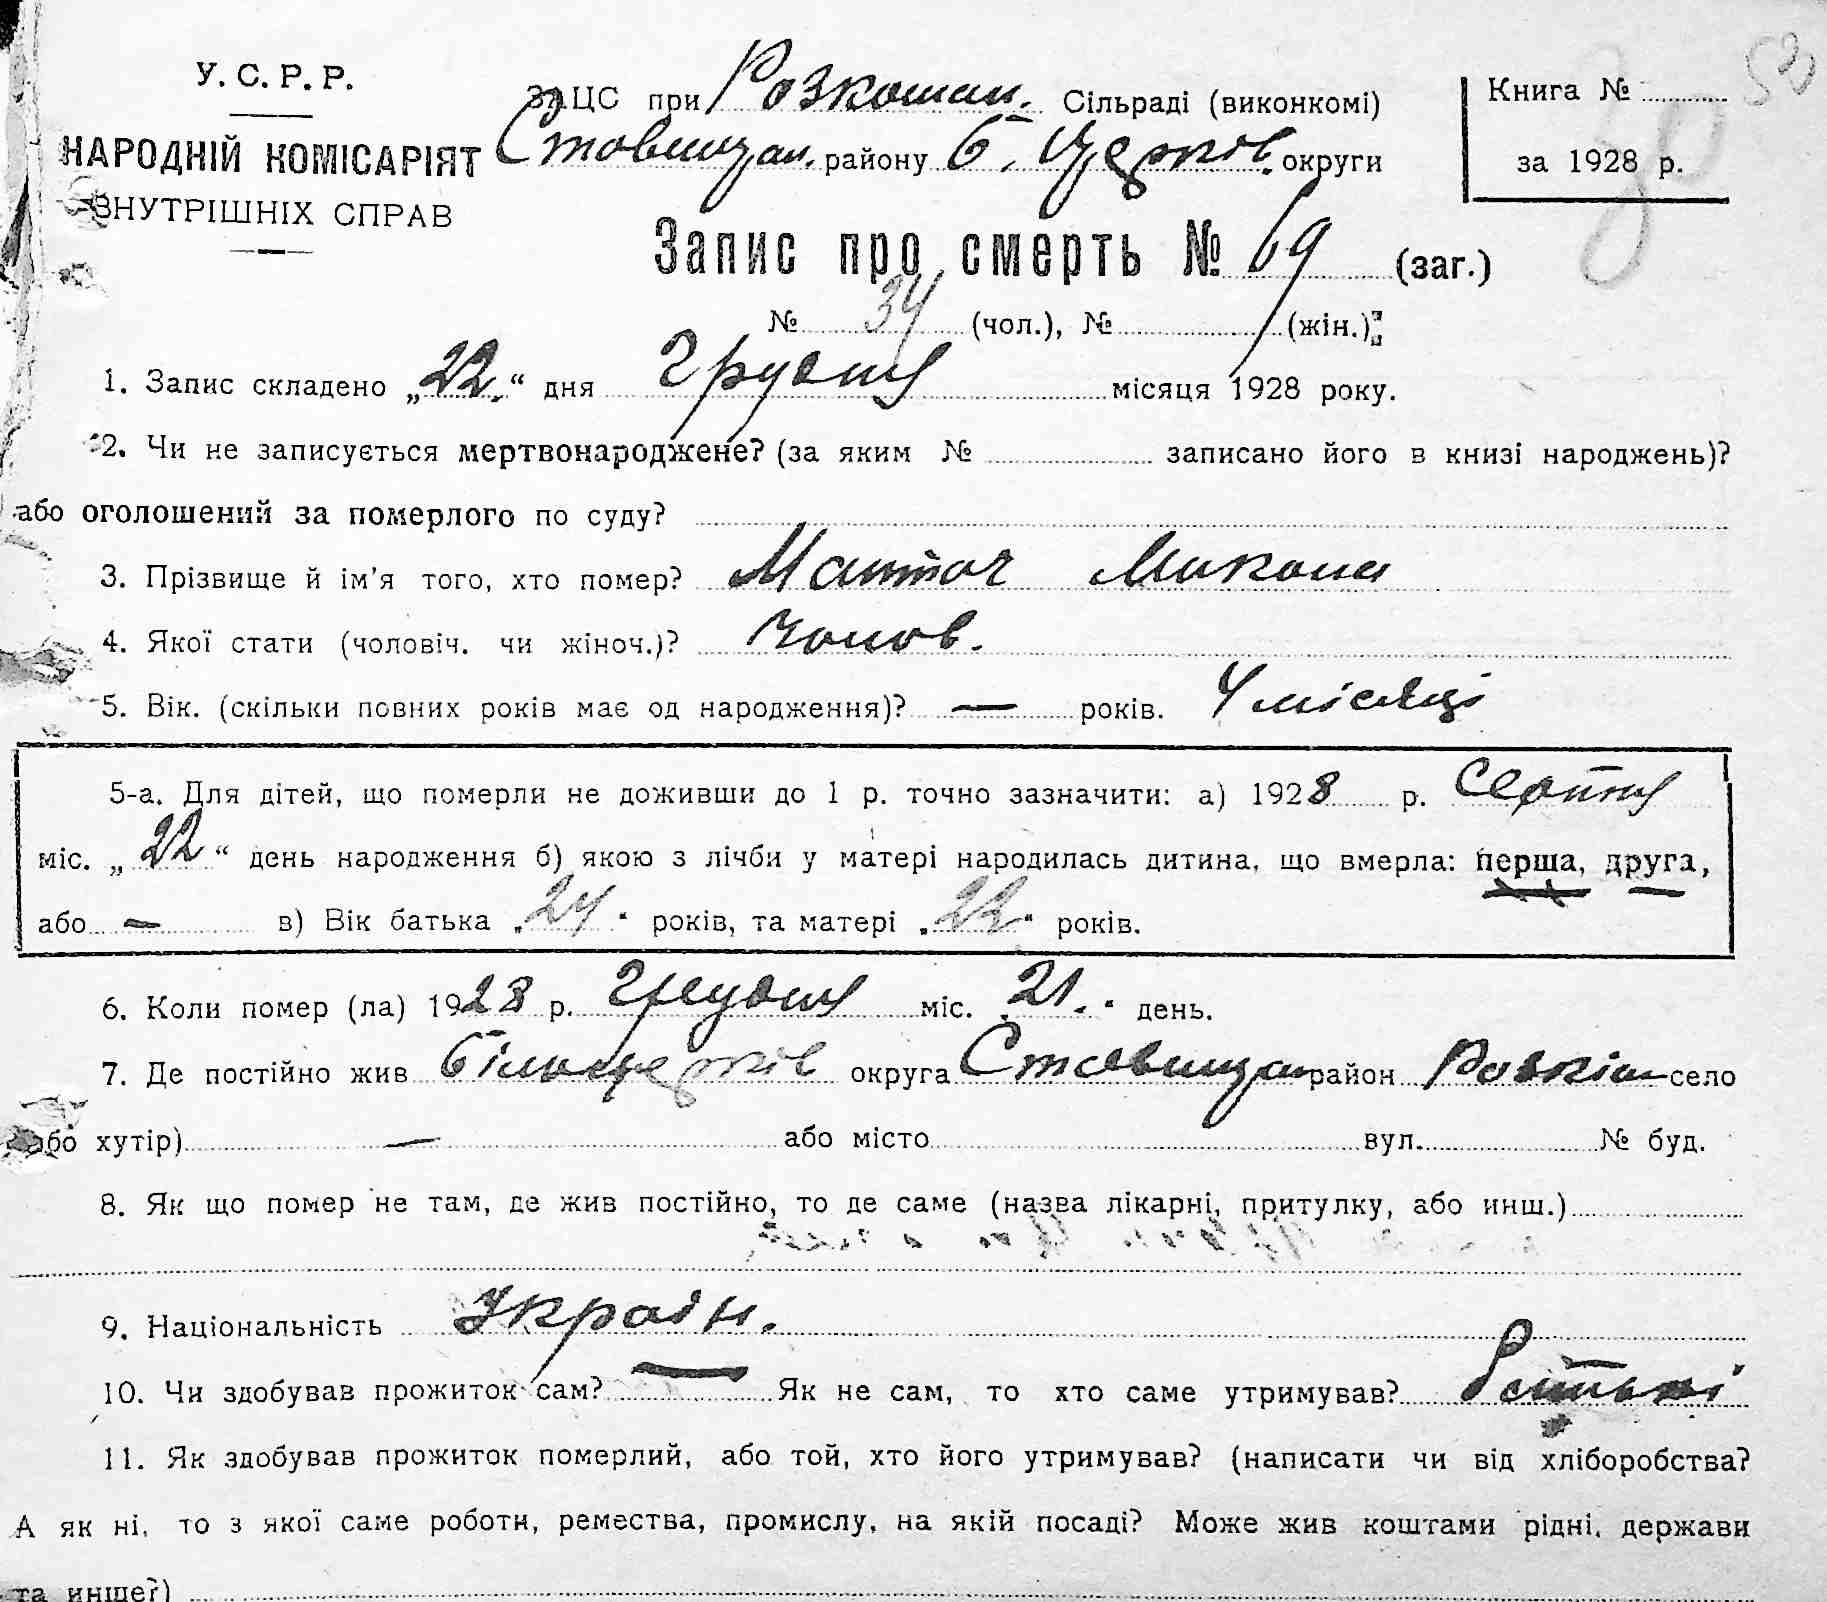 У. С. Р. Р.
НАРОДНІЙ КОМІСАРІЯТ
ВНУТРІШНІХ СПРАВ
ЗАЦС при Розкошан. Сільраді (виконкомі)
Ставищан. району Б. Церків. округи
Книга №
за 1928 р.
Запис про смерть № 69 (заг.)
№ 34 (чол.), № (жін.)
1. Запис складено „22." дня Грудня місяця 1928 року.
2. Чи не записується мертвонароджене? (за яким № записано його в книзі народжень)?
або оголошений за померлого по суду?
3. Прізвище й ім'я того, хто помер? Микола
4. Якої стати (чоловіч. чи жіноч.)? Чолов.
5. Вік. (скільки повних років має од народження)? — років. 4 місяці
5-а. Для дітей, що померли не доживши до 1 р. точно зазначити: а) 1928 р. Серпня
міс. „22" день народження б) якою з лічби у матері народилась дитина, що вмерла: перша, друга,
або — в) Вік батька „24" років, та матері „22" років.
6. Коли помер (ла) 1928 р. Грудня міс. „21." день.
7. Де постійно жив Білоцерків округа Ставищан район Розкіш село
або хутір) — або місто вул. № буд.
8. Як що помер не там, де жив постійно, то де саме (назва лікарні, притулку, або инш.)
9. Національність Україн.
10. Чи здобував прожиток сам? — Як не сам, то хто саме утримував?
11. Як здобував прожиток померлий, або той, хто його утримував? (написати чи від хліборобства?
А як ні, то з якої саме роботи, ремества, промислу, на якій посаді? Може жив коштами рідні, держави
та инше?)